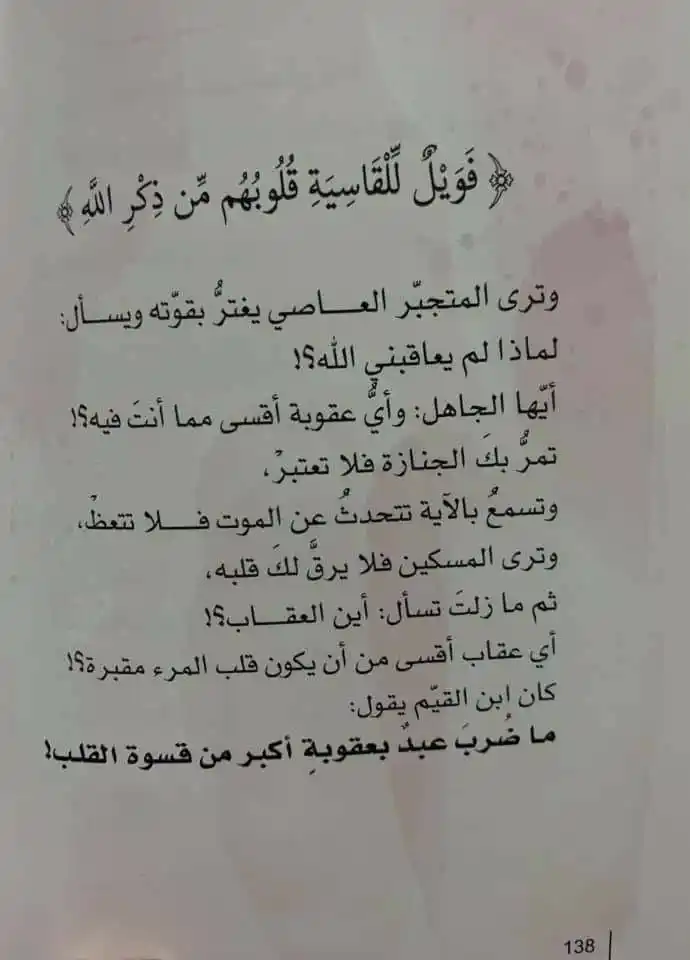 ﴿ فَوَيْلٌ لِّلْقَاسِيَةِ قُلُوبُهُم مِّن ذِكْرِ اللَّهِ ﴾
وترى المتجبّر العـــاصي يغترُّ بقوّته ويســأل:
لماذا لم يعاقبني الله؟!
أيّها الجاهل: وأيُّ عقوبة أقسى مما أنتَ فيه؟!
تمرُّ بكَ الجنازة فلا تعتبرْ،
وتسمعُ بالآية تتحدثُ عن الموت فـــلا تتعظْ،
وترى المسكين فلا يرقَّ لكَ قلبه،
ثم ما زلتَ تسأل: أين العقـــاب؟!
أي عقاب أقسى من أن يكون قلب المرء مقبرة؟!
كان ابن القيّم يقول:
ما ضُربَ عبدٌ بعقوبةِ أكبر من قسوة القلب!
138